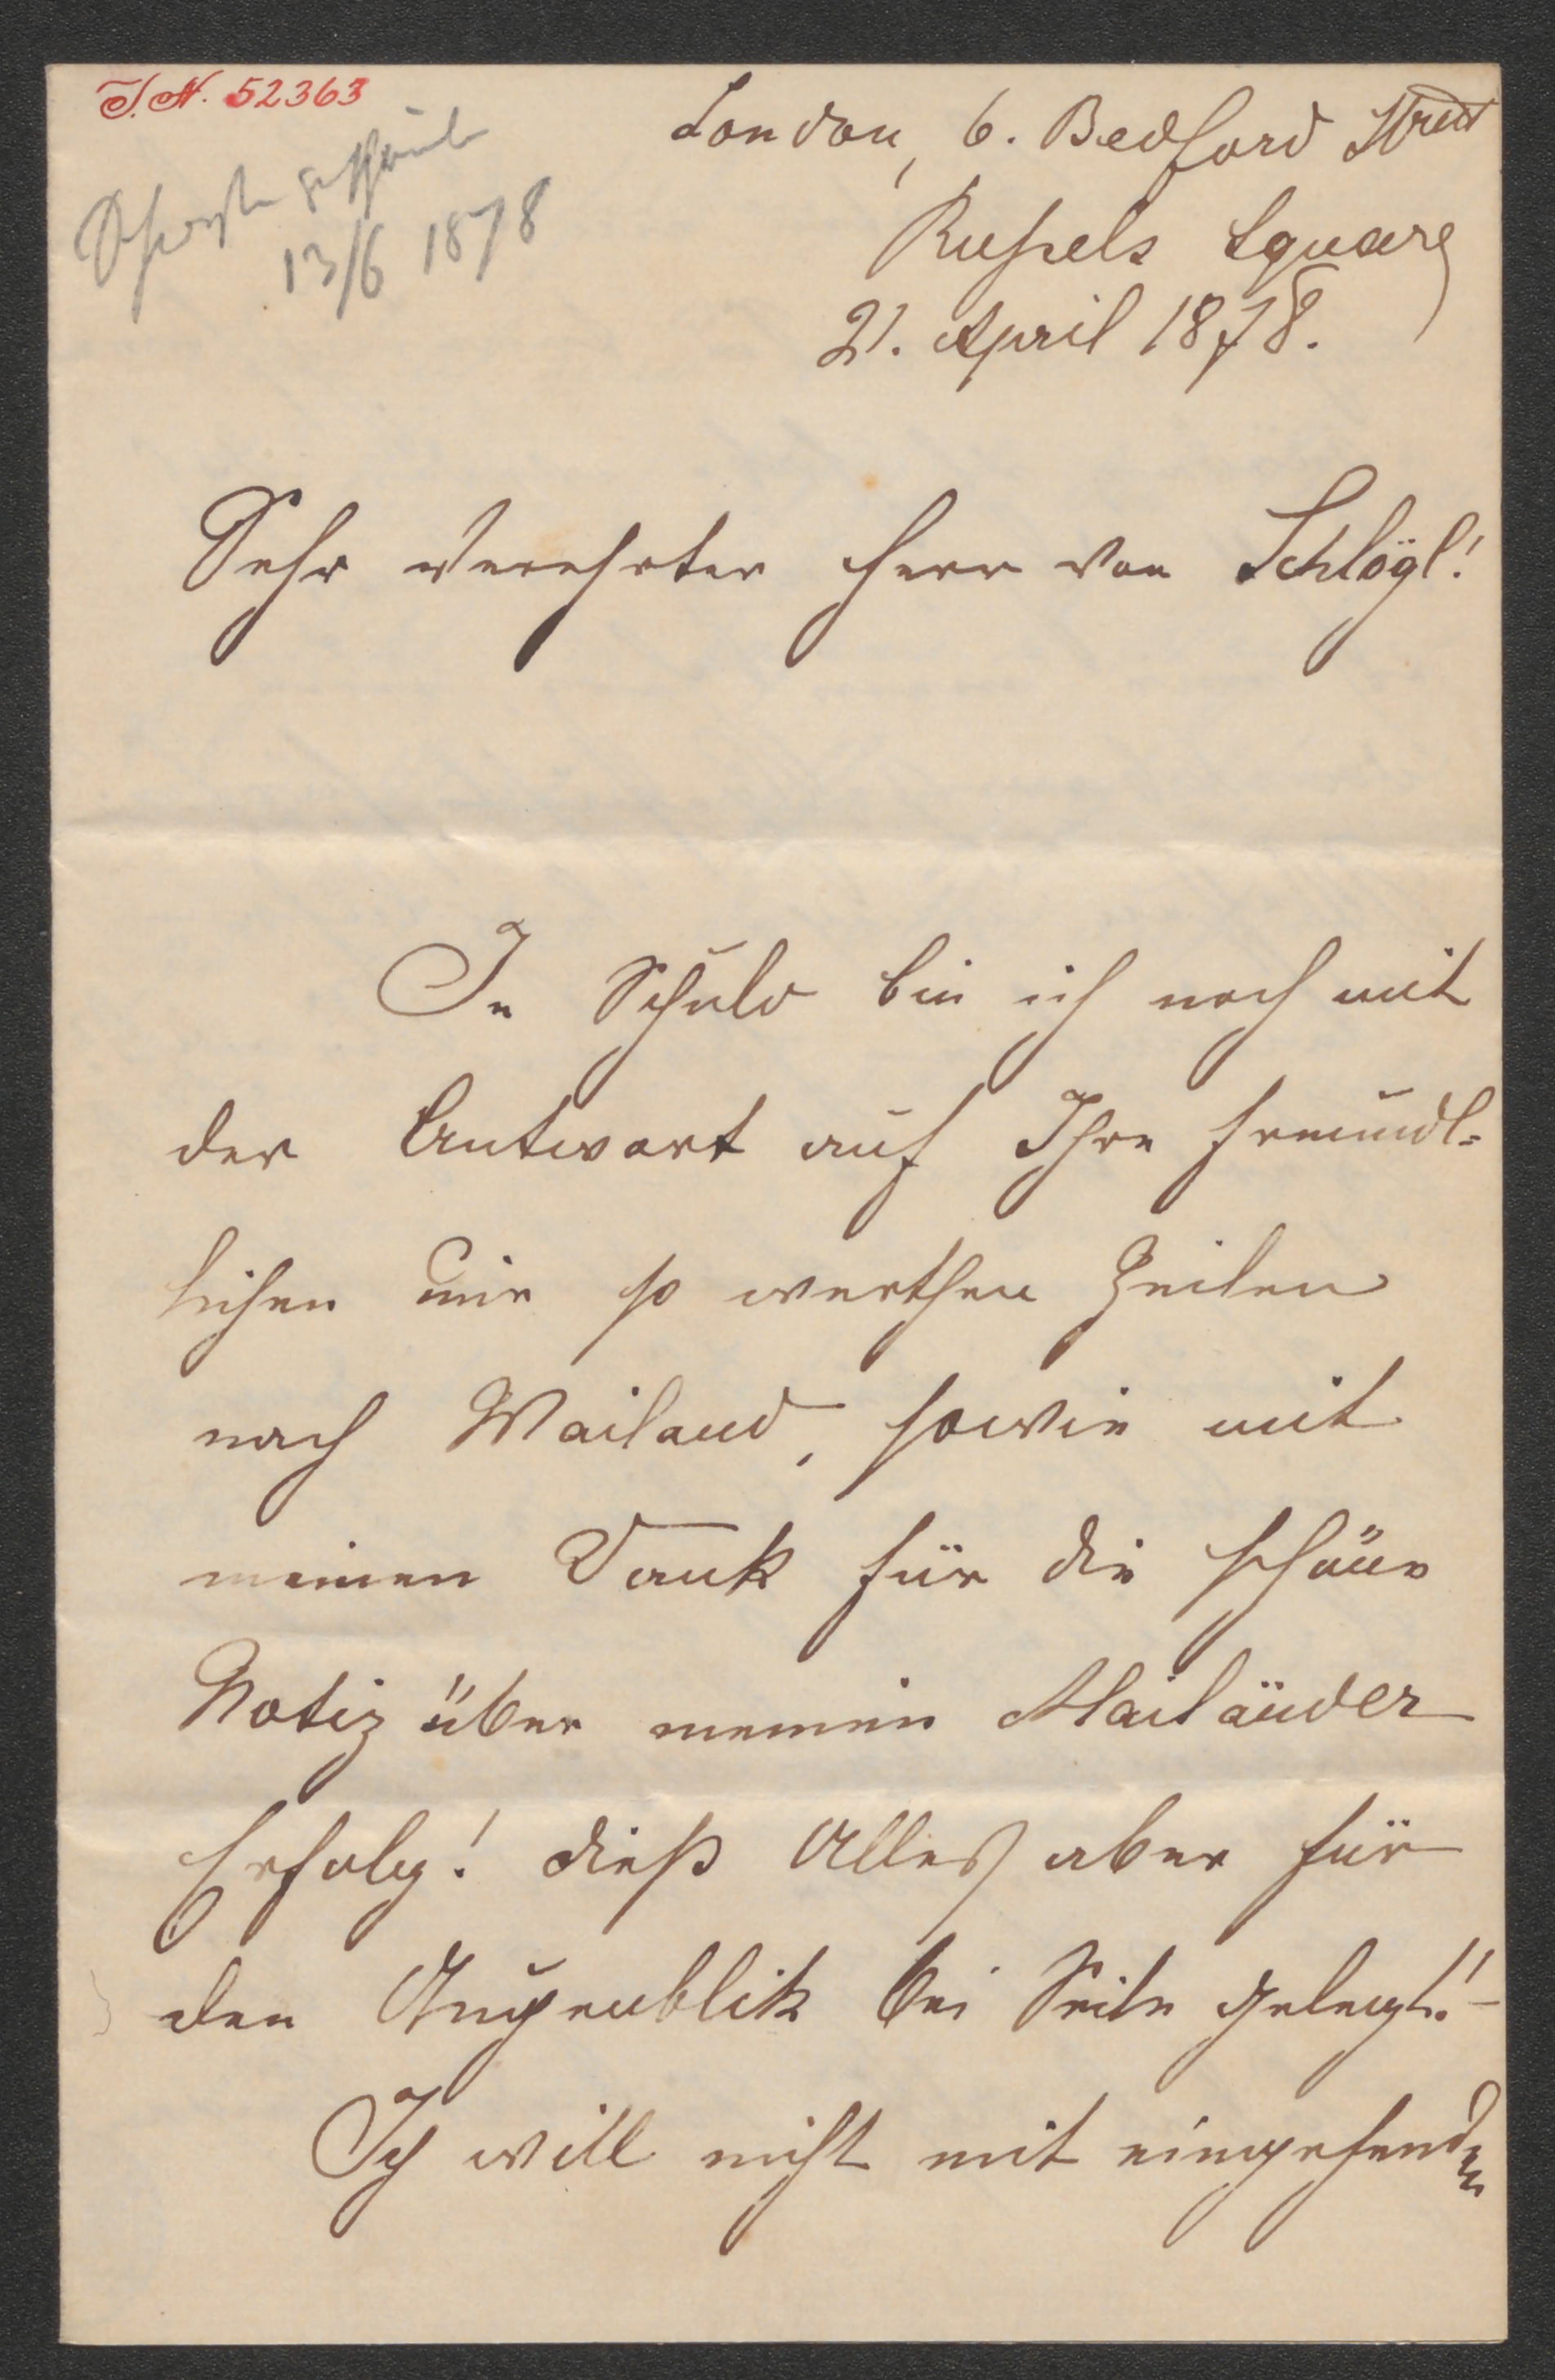 I.N. 52363
13/6 1878
London, 6. Bedford Street
Russels Square
21. April 1878.
Sehr verehrter Herr von Schlögl!
In Schuld bin ich noch mit
der Antwort auf Ihre freundl-
lichen mir so werthen Zeilen
nach Mailand, sowie mit
meinen Dank für die schöne
Notiz über meinen Mailänder
Erfolg! dieß Alles aber für
den Augenblik bei Seite gelegt! –
Ich will nicht mit eingehenden